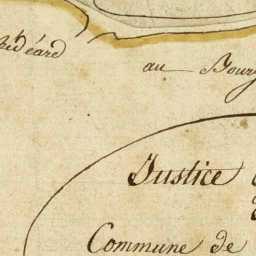 au Bourg
Justice
Commune de